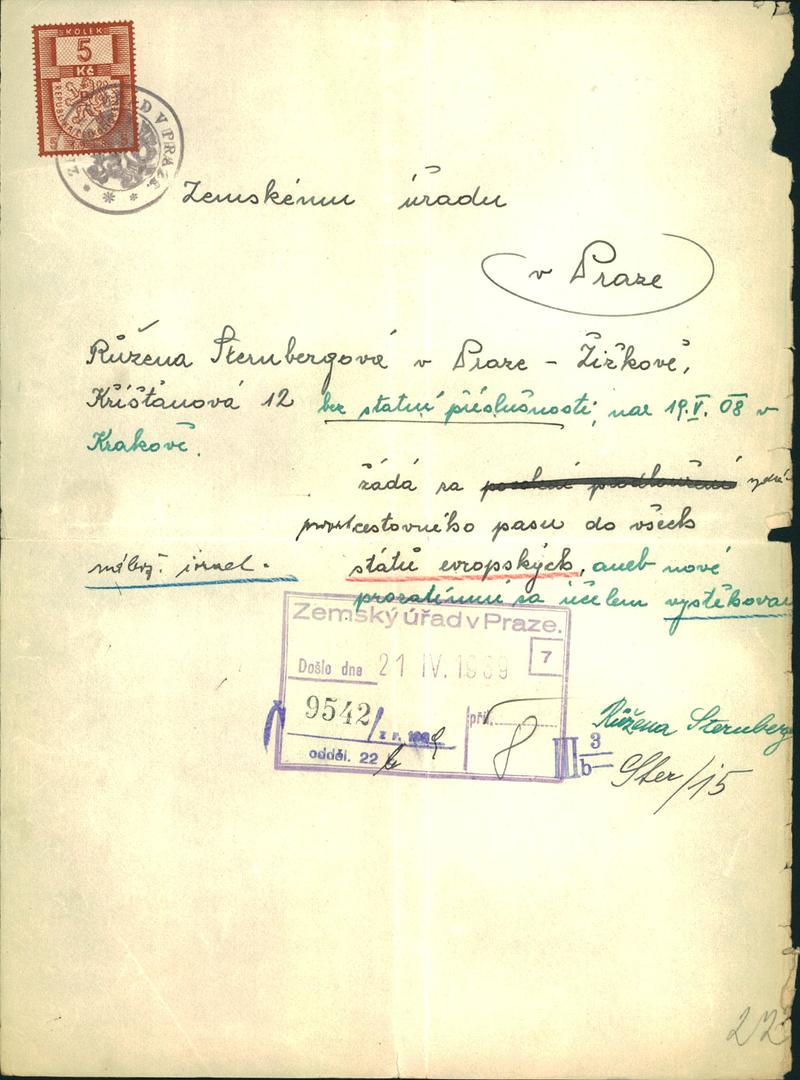 KOLEK
5
Kč
Zemskému úřadu
v Praze
Růžena Šternbergová v Praze - Žižkově,
Křišťanová 12 bez statní příslušnosti, nar 19.V. 08 v
Krakově.
žádá za
cestovného pasu do všech
nábož. izrael.
států evropských, aneb nové
prozatímní za účelem vystěhovan
Zemský úřad v Praze.
Došlo dne 21 IV. 1939
7
9542/
z r. 1939
příl.
8
odděl. 22
III 3
b
Růžena Sternberg
Ster/15
22